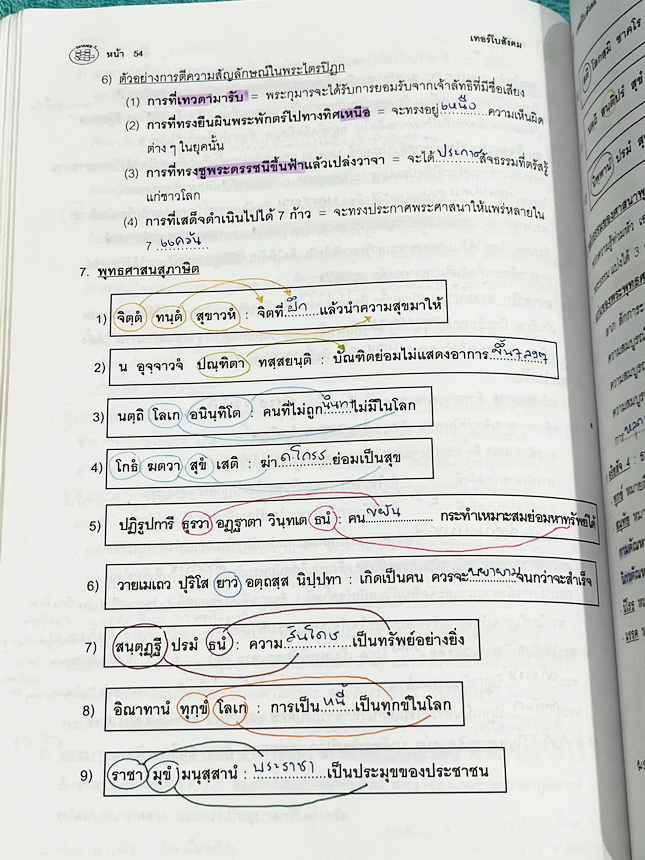 หน้า 54
เทอร์โบสังคม
6) ตัวอย่างการตีความสัญลักษณ์ในพระไตรปิฎก
(1) การที่เทวดามารับ = พระกุมารจะได้รับการยอมรับจากเจ้าลัทธิที่มีชื่อเสียง
(2) การที่ทรงยืนผินพระพักตร์ไปทางทิศเหนือ = จะทรงอยู่เหนือความเห็นผิด
ต่าง ๆ ในยุคนั้น
(3) การที่ทรงชูพระดรรชนีขึ้นฟ้าแล้วเปล่งวาจา = จะได้ประกาศสัจธรรมที่ตรัสรู้
แก่ชาวโลก
(4) การที่เสด็จดำเนินไปได้ 7 ก้าว = จะทรงประกาศพระศาสนาให้แพร่หลายใน
7 แคว้น
7. พุทธศาสนสุภาษิต
1) จิตฺตํ ทนฺตํ สุขาวหํ : จิตที่ฝึกแล้วนำความสุขมาให้
2) น อุจฺจาวจํ ปณฺฑิตา ทสฺสยนฺติ : บัณฑิตย่อมไม่แสดงอาการขึ้นๆลงๆ
3) นตฺถิ โลเก อนินฺทิโต : คนที่ไม่ถูกนินทาไม่มีในโลก
4) โกธํ ฆตวา สุขํ เสติ : ฆ่าความโกรธย่อมเป็นสุข
5) ปฏิรูปการี ธุรวา อุฏฺฐาตา วินฺทเต ธนํ : คนขยัน กระทำเหมาะสมย่อมหาทรัพย์ได้
6) วายเมเถว ปุริโส ยาว อตฺถสฺส นิปฺปทา : เกิดเป็นคน ควรจะพยายามจนกว่าจะสำเร็จ
7) สนฺตุฏฺฐี ปรมํ ธนํ : ความสันโดษเป็นทรัพย์อย่างยิ่ง
8) อิณาทานํ ทุกฺขํ โลเก : การเป็นหนี้เป็นทุกข์ในโลก
9) ราชา มุขํ มนุสฺสานํ : พระราชาเป็นประมุขของประชาชน